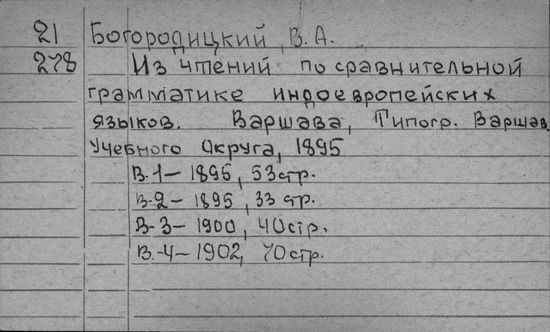 21 Богородицкий, В. А.
278 Из чтений по сравнительной
грамматике индоевропейских
языков. Варшава, Типогр. Варшав.
Учебного Округа, 1895
В. 1 - 1895, 53 стр.
В. 2 - 1895, 33 стр.
В. 3 - 1900, 40 стр.
В. 4 - 1902, 70 стр.